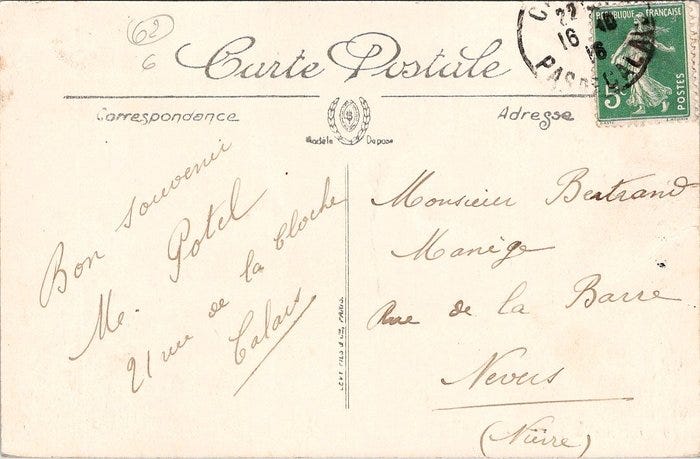 62
6
Carte Postale
Correspondance
Adresse
Modèle Déposé
Bon souvenir
Me. Potel
21 rue de la Cloche
Calais
LEVY FILS & Cie, PARIS.
Monsieur Bertrand
Manège
Rue de la Barre
Nevers
(Nièvre)
REPUBLIQUE FRANÇAISE
POSTES
5c
22
16
16
PAS DE CALAIS